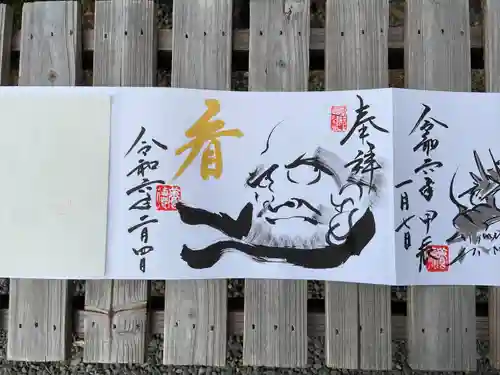 奉拝
看
令和六年二月四日
令和六年 甲辰
一月七日